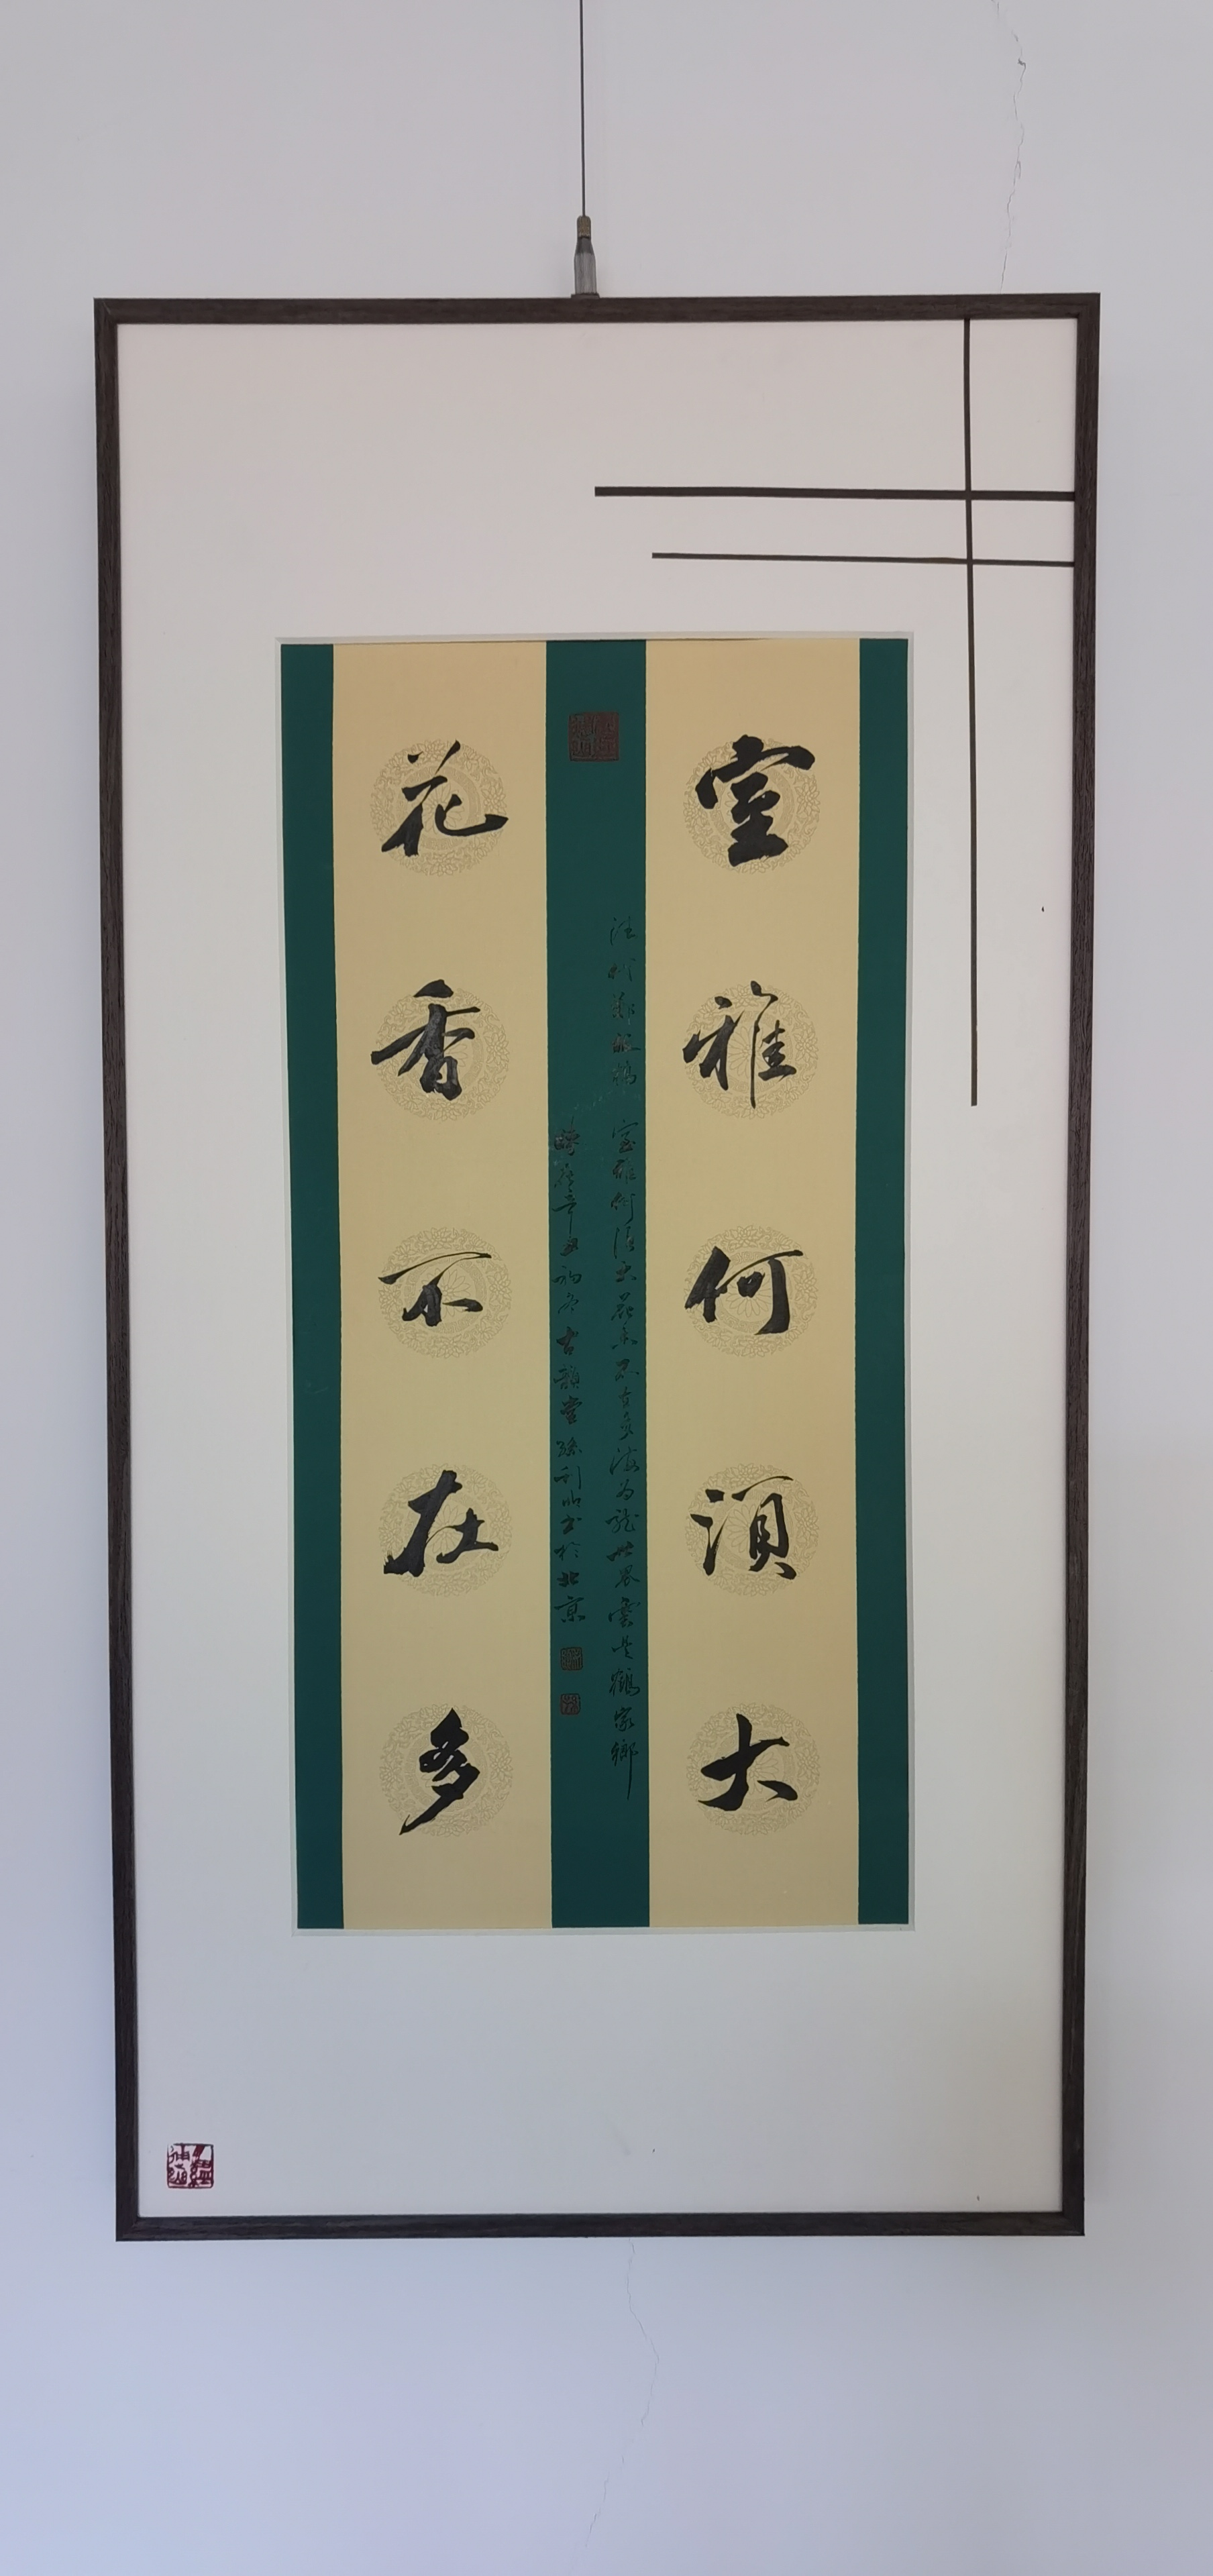 室雅何須大
花香不在多
室雅何須大花香不在多海為龍世界雲是鶴家鄉
時在辛丑初冬古韻堂孫利明書於北京